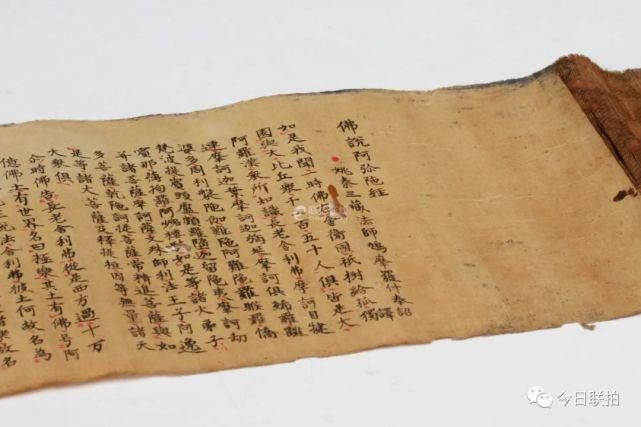 佛說阿弥陁經
姚秦三藏法師鳩摩羅什奉詔譯
如是我聞一時佛在舍衛國祇樹給孤獨
園與大比丘衆千二百五十人俱皆是大
阿羅漢衆所知識長老舍利弗摩訶目揵
連摩訶迦葉摩訶迦旃延摩訶俱絺羅離
婆多周利槃陁伽難陁阿難陁羅睺羅憍
梵波提賓頭盧頗羅墮迦留陁夷摩訶劫
賓那薄拘羅阿㝹樓如是等諸大弟子
并諸菩薩摩訶薩文殊師利法王子阿逸
多菩薩乹陁訶提菩薩常精進菩薩與如
是等諸大菩薩及釋提桓因等無量諸天
大衆俱
尒時佛告長老舍利弗從是西方過十万
億佛土有世界名曰極樂其土有佛号阿
今現在說法舍利弗彼土何故名為
今日联拍